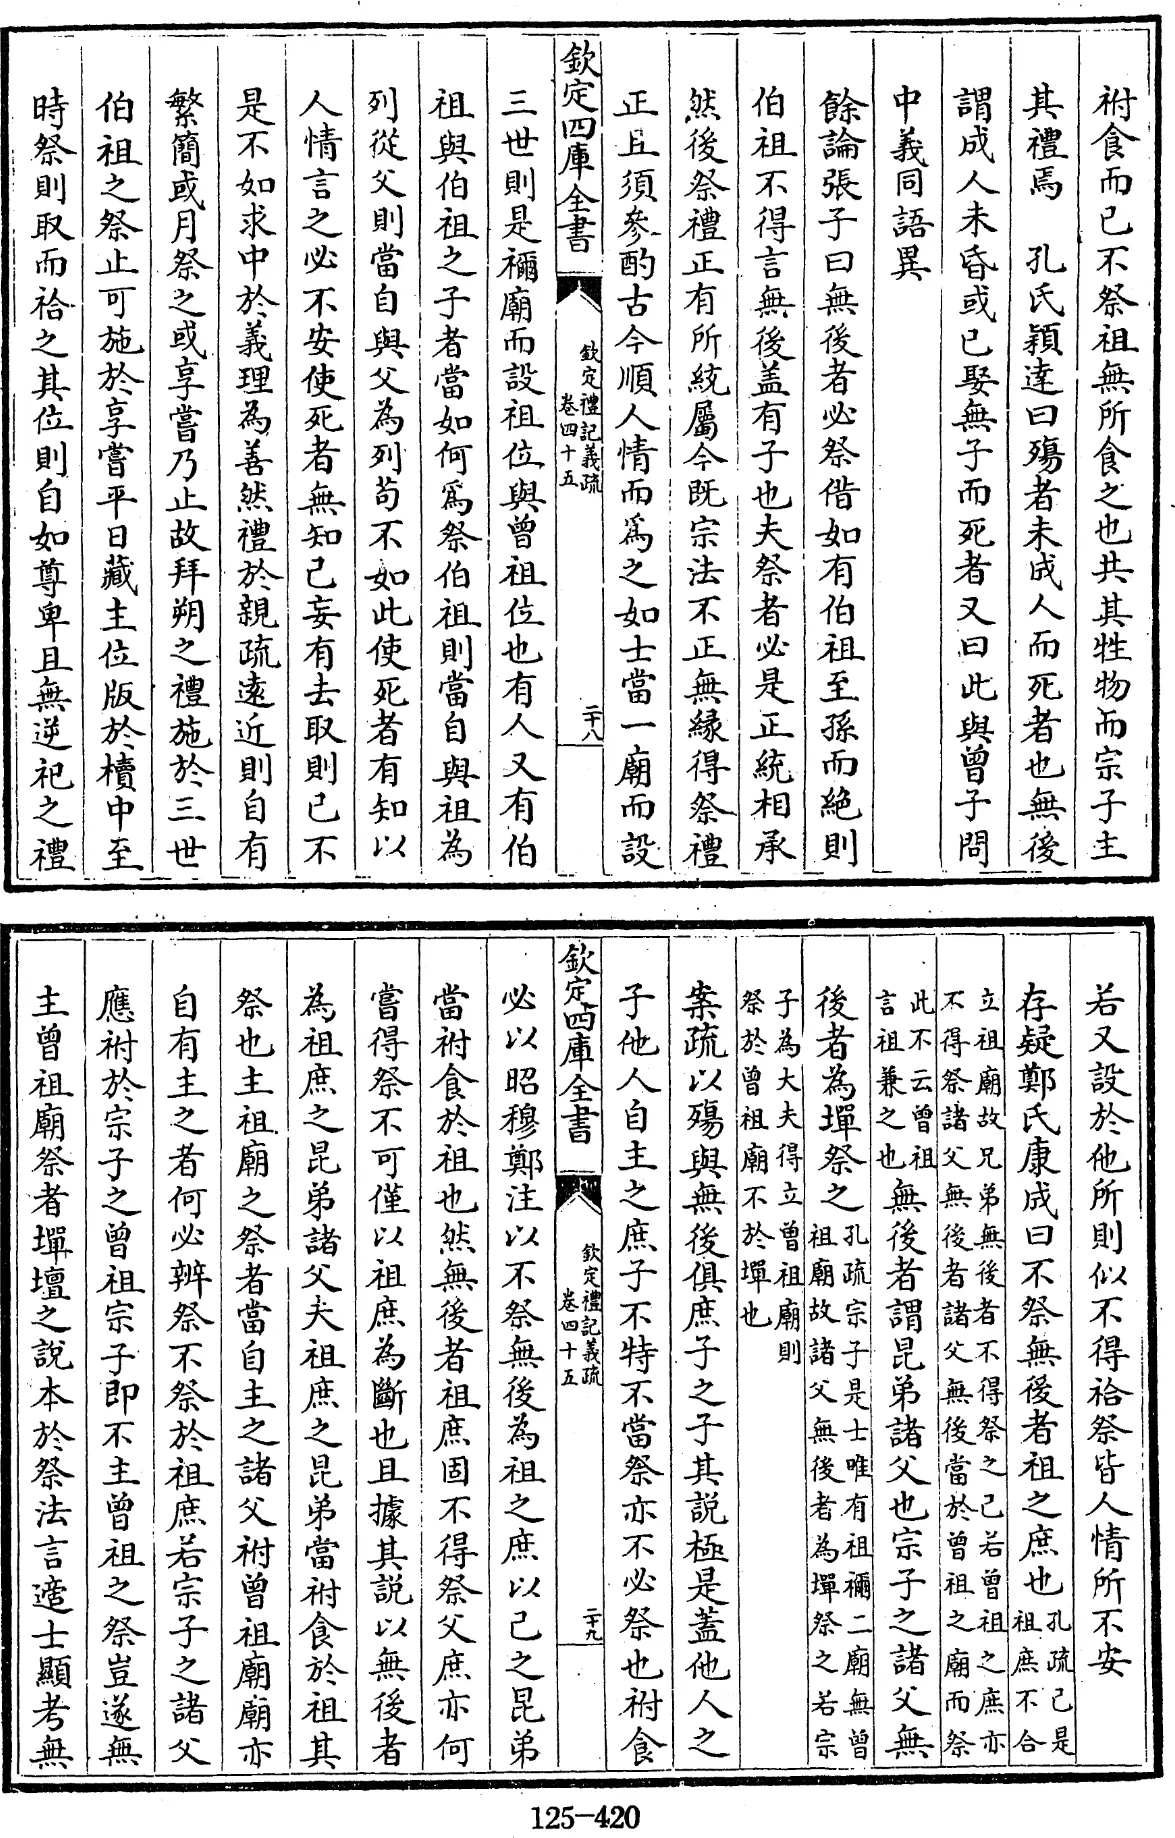 祔食而已不祭祖無所食之也共其牲物而宗子主
其禮焉　孔氏穎達曰殤者未成人而死者也無後
謂成人未昏或已娶無子而死者又曰此與曾子問
中義同語異
餘論張子曰無後者必祭借如有伯祖至孫而絶則
伯祖不得言無後盖有子也夫祭者必是正統相承
然後祭禮正有所統屬今既宗法不正無縁得祭禮
正且須參酌古今順人情而為之如士當一廟而設
欽定四庫全書
欽定禮記義疏
卷四十五
二十八
三世則是禰廟而設祖位與曾祖位也有人又有伯
祖與伯祖之子者當如何為祭伯祖則當自與祖為
列從父則當自與父為列苟不如此使死者有知以
人情言之必不安使死者無知己妄有去取則已不
是不如求中於義理為善然禮於親疏遠近則自有
繁簡或月祭之或享嘗乃止故拜朔之禮施於三世
伯祖之祭止可施於享嘗平日藏主位版於櫝中至
時祭則取而祫之其位則自如尊卑且無逆祀之禮
若又設於他所則似不得祫祭皆人情所不安
存疑鄭氏康成曰不祭無後者祖之庶也孔疏己是祖庶不合
立祖廟故兄弟無後者不得祭之己若曾祖之庶亦
不得祭諸父無後者諸父無後當於曾祖之廟而祭
此不云曾祖言祖兼之也無後者謂昆弟諸父也宗子之諸父無
後者為墠祭之孔疏宗子是士唯有祖禰二廟無曾祖廟故諸父無後者為墠祭之若宗
子為大夫得立曾祖廟則
祭於曾祖廟不於墠也
案疏以殤與無後俱庶子之子其説極是蓋他人之
子他人自主之庶子不特不當祭亦不必祭也祔食
欽定四庫全書
欽定禮記義疏
卷四十五
二十九
必以昭穆鄭注以不祭無後為祖之庶以己之昆弟
當祔食於祖也然無後者祖庶固不得祭父庶亦何
嘗得祭不可僅以祖庶為斷也且據其説以無後者
為祖庶之昆弟諸父夫祖庶之昆弟當祔食於祖其
祭也主祖廟之祭者當自主之諸父祔曾祖廟廟亦
自有主之者何必辨祭不祭於祖庶若宗子之諸父
應祔於宗子之曾祖宗子即不主曾祖之祭豈遂無
主曾祖廟祭者墠壇之説本於祭法言適士顯考無
125-420